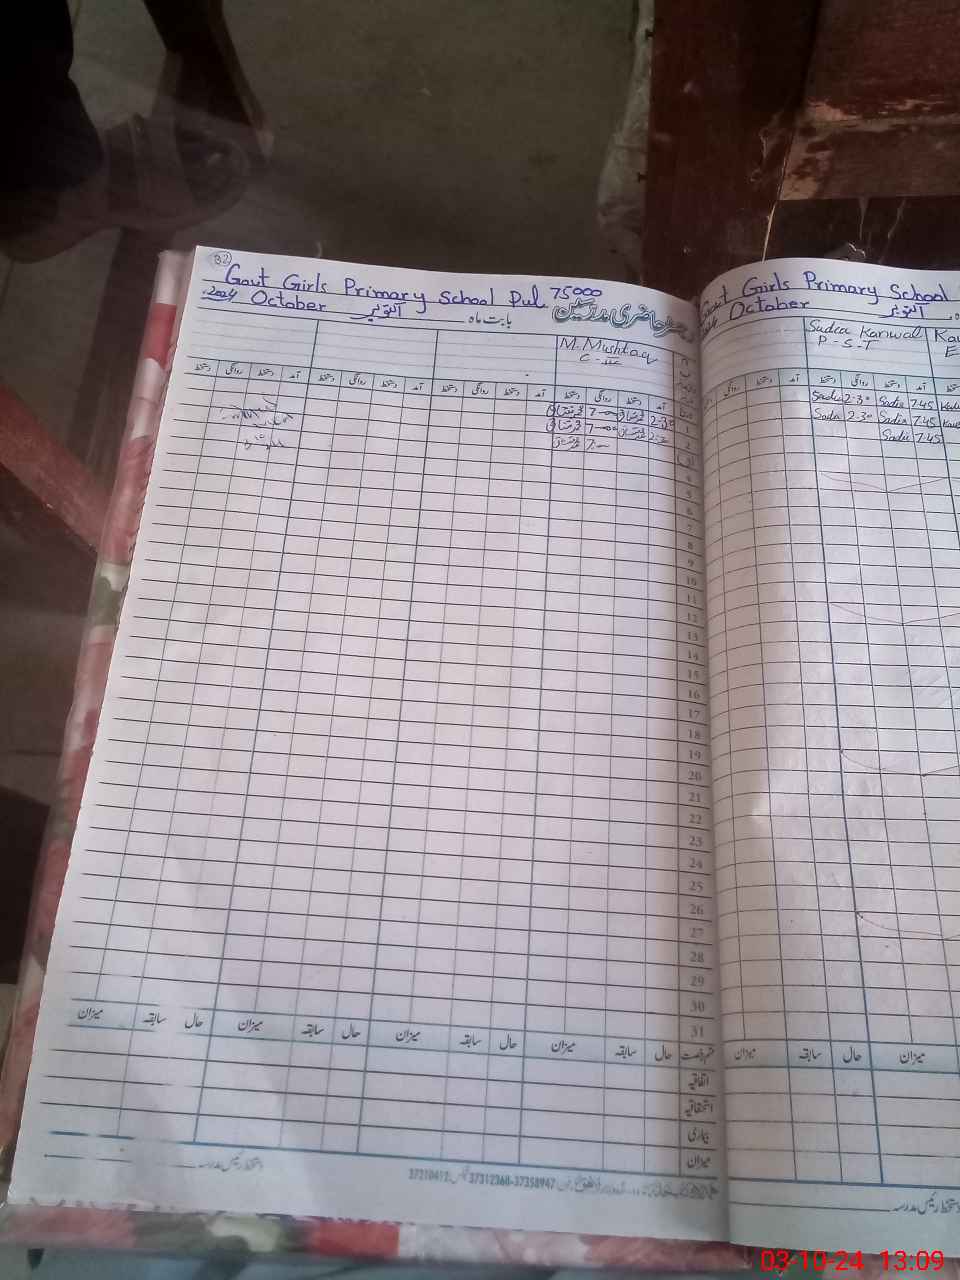 32
Govt Girls Primary School Pul 75000
2024 October اکتوبر
بابت ماہ
رجسٹر حاضری مدرسین
M. Mushtaq
C-IV
دستخط روانگی دستخط آمد دستخط روانگی دستخط آمد دستخط روانگی دستخط آمد دستخط روانگی دستخط آمد
7-00 2-30
1
7-00 2-30
2
7-00
4
5
6
7
8
9
10
11
12
13
14
15
16
17
18
19
20
21
22
23
24
25
26
27
28
29
30
31
میزان سابقہ حال میزان سابقہ حال میزان سابقہ حال میزان سابقہ حال قسم رخصت
اتفاقیہ
استحقاقیہ
بیماری
میزان
دستخط رئیس مدرسہ
37310412 37312368-37358947
Govt Girls Primary School
2024 October اکتوبر
Sadia Kanwal
P-S-T
روانگی دستخط آمد دستخط روانگی دستخط آمد
Sadia 2-30 Sadia 7:45
Sadia 2-30 Sadia 7:45
Sadia 7:45
میزان سابقہ حال میزان
دستخط رئیس مدرسہ
03-10-24 13:09